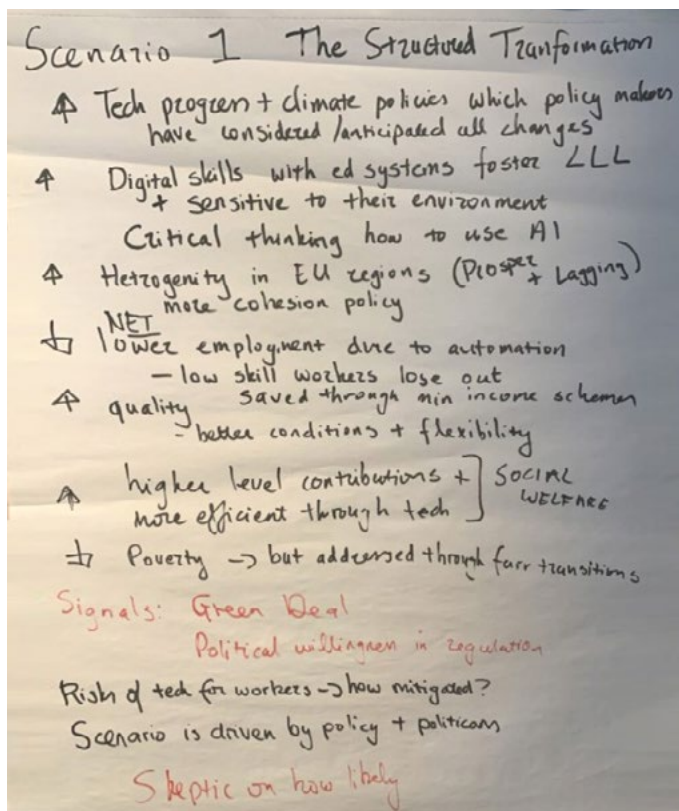 Scenario 1 The Structured Tranformation
↑ Tech progress + climate policies which policy makers
have considered /anticipated all changes
↑ Digital skills with ed systems foster LLL
+ sensitive to their environment
Critical thinking how to use AI
↑ Hetrogenity in EU regions (Prosper + Lagging)
more cohesion policy
NET
↓ lower employment due to automation
– low skill workers lose out
↑ quality saved through min income schemes
- better conditions + flexibility
↑ higher level contributions + ] SOCIAL
more efficient through tech WELFARE
↓ Poverty -> but addressed through fair transitions
Signals: Green Deal
Political willingness in regulation
Risk of tech for workers -> how mitigated?
Scenario is driven by policy + politicans
Skeptic on how likely